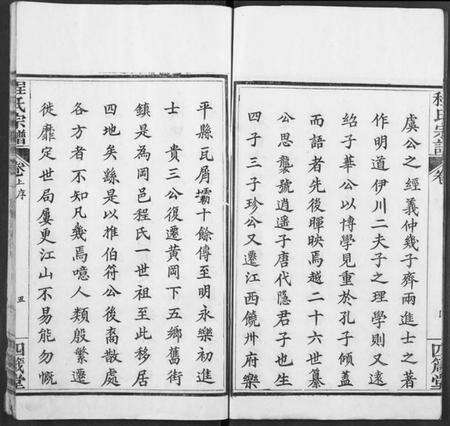 程氏宗譜
卷
四箴堂
虞公之經義仲幾子齊兩進士之著
作明道伊川二夫子之理學則又遠
紹子華公以博學見重於孔子傾蓋
而語者先後暉映焉越二十六世纂
公思藝號逍遥子唐代隱君子也生
四子三子珍公又遷江西饒州府樂
平縣瓦屑壩十餘傳至明永樂初進
士 貴三公復遷黄岡下五鄉舊街
鎮是為岡邑程氏一世祖至此移居
四地矣縣是以推伯符公後裔散處
各方者不知凡幾焉噫人類殷繁遷
徙靡定世局屢更江山不易能勿慨
程氏宗譜
卷上序
五
四箴堂